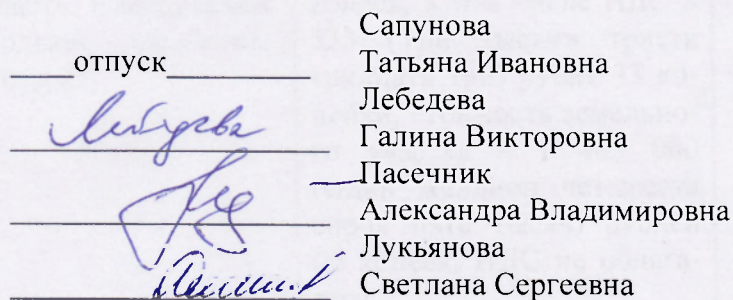 Сапунова
отпуск Татьяна Ивановна
Лебедева
Лебедева Галина Викторовна
Пасечник
Александра Владимировна
Лукьянова
Светлана Сергеевна